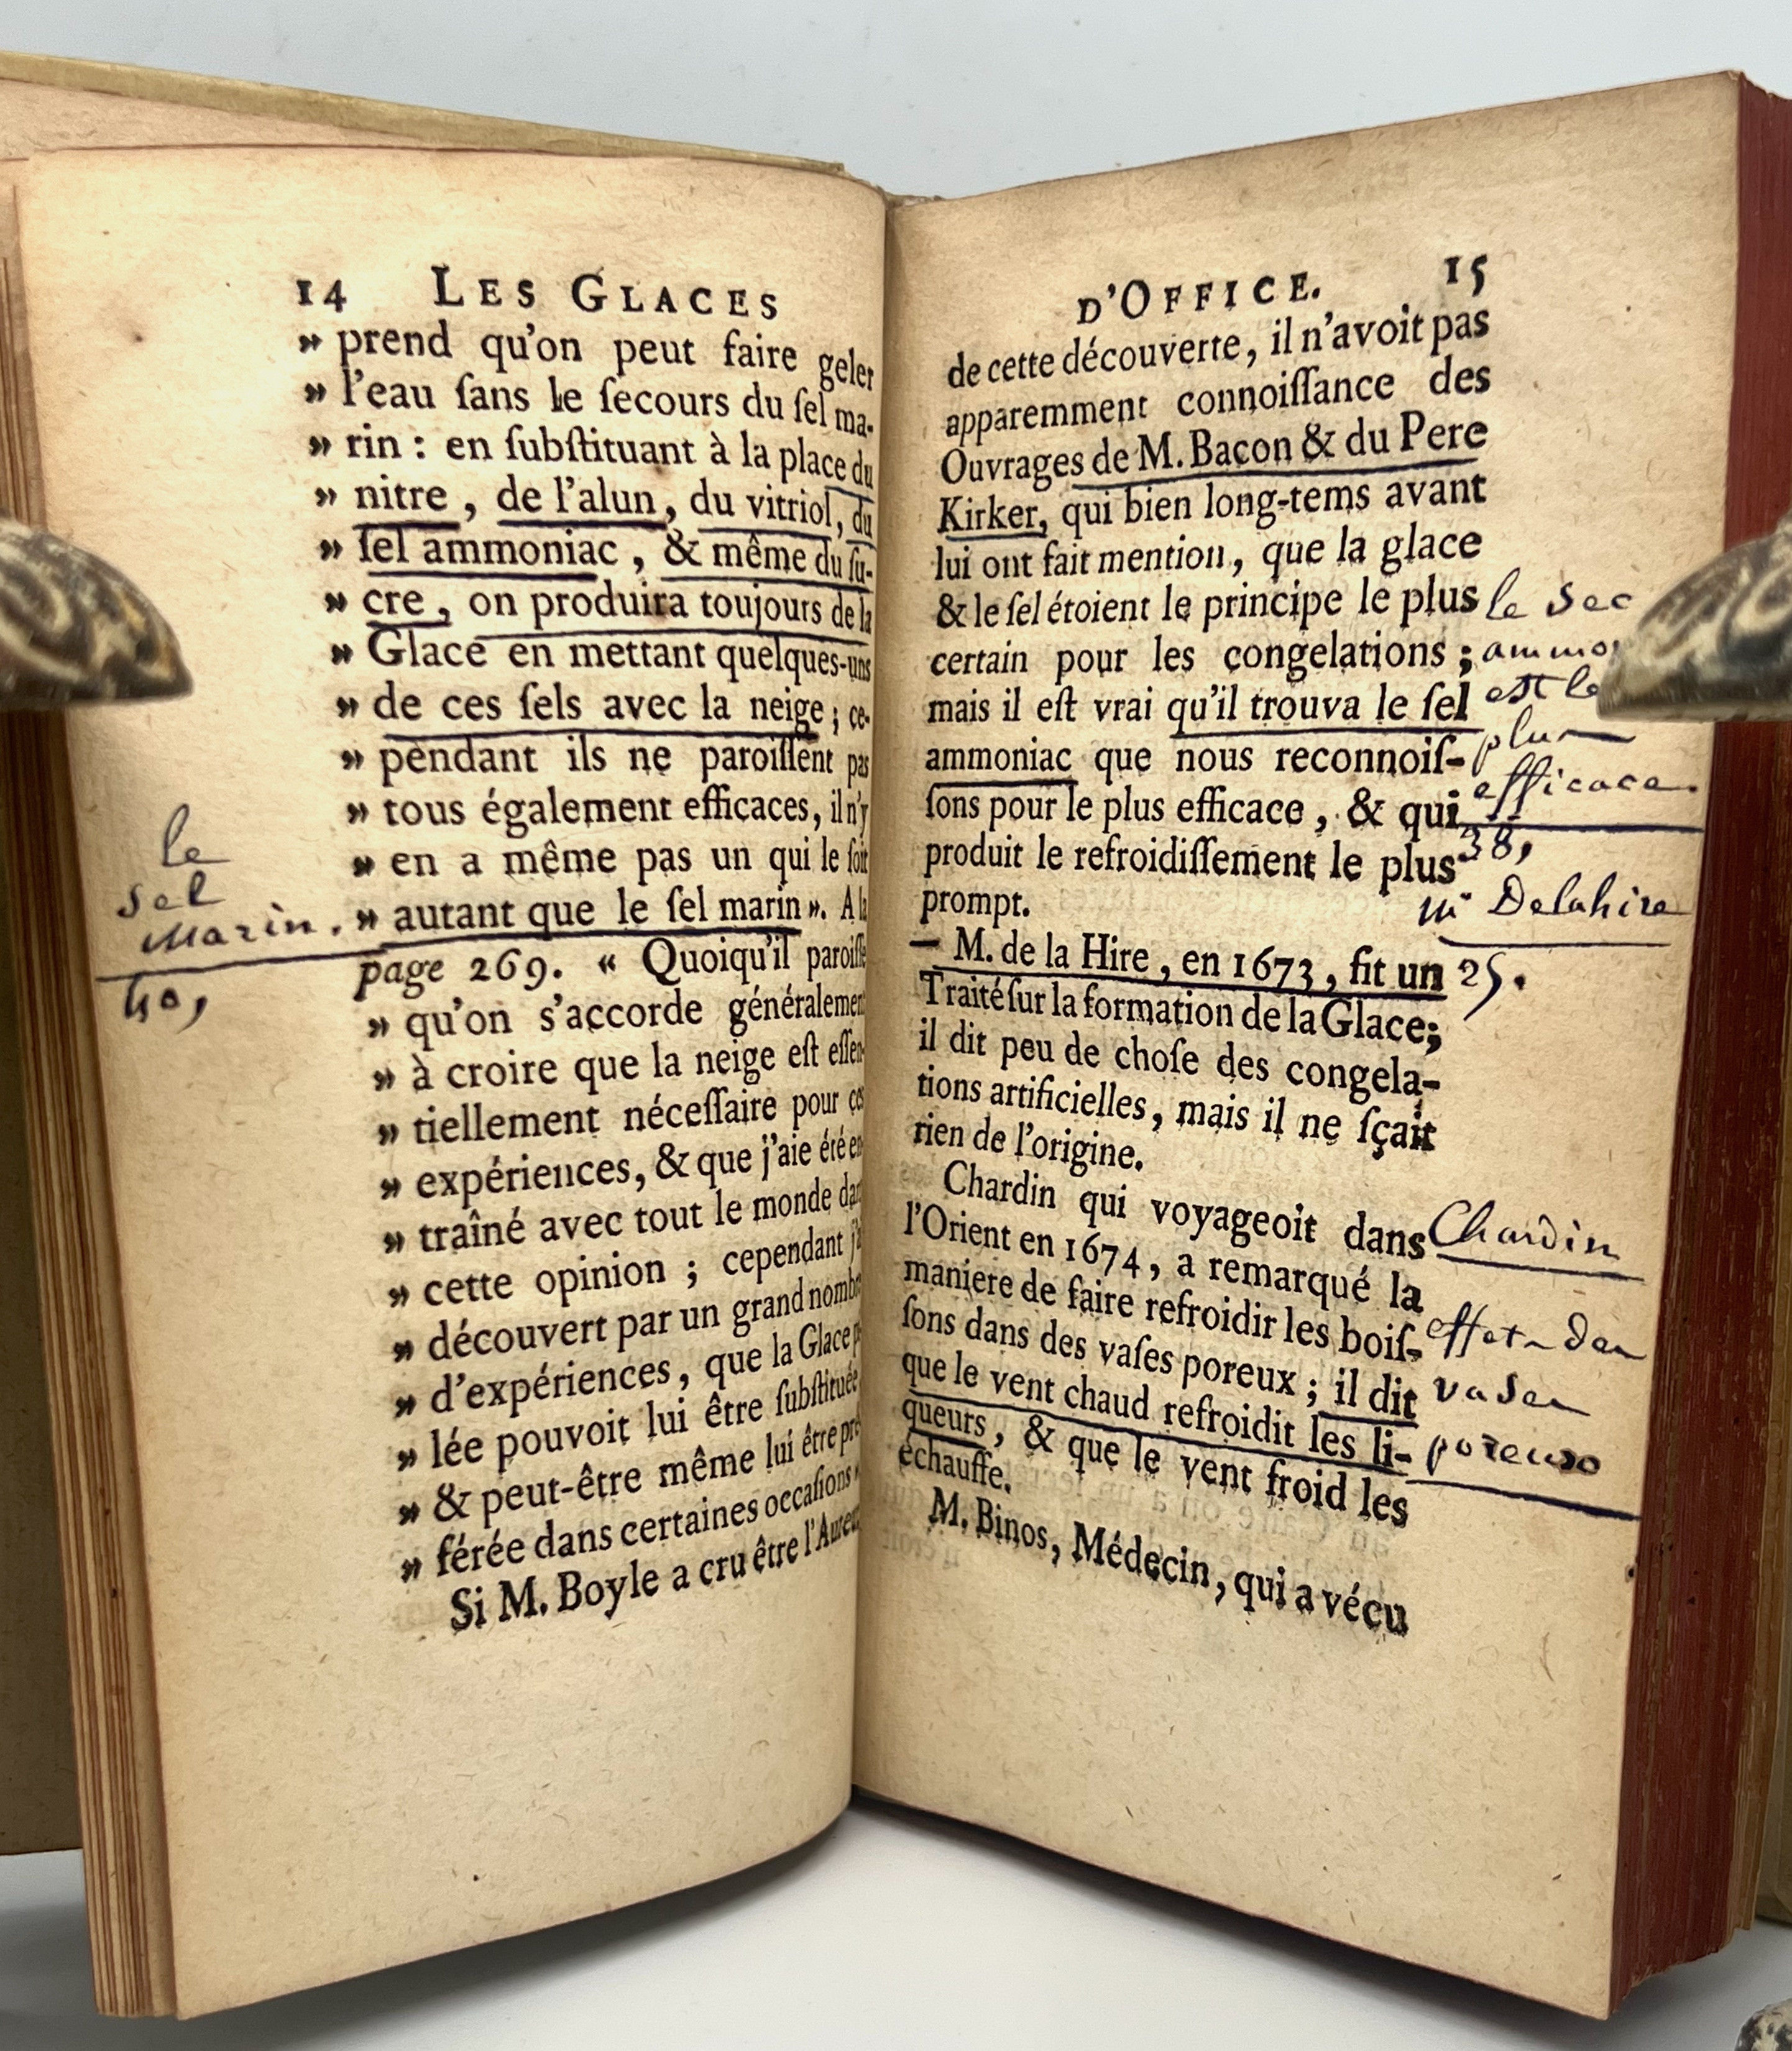 14 LES GLACES
» prend qu'on peut faire geler
» l'eau ſans le ſecours du ſel ma-
» rin : en ſubſtituant à la place du
» nitre, de l'alun, du vitriol, du
» ſel ammoniac, & même du ſu-
» cre, on produira toujours de la
» Glace en mettant quelques-uns
» de ces ſels avec la neige; ce-
» pendant ils ne paroiſſent pas
» tous également efficaces, il n'y
» en a même pas un qui le ſoit
» autant que le ſel marin ». A la
page 269. « Quoiqu'il paroiſſe
» qu'on s'accorde généralement
» à croire que la neige eſt eſſen-
» tiellement néceſſaire pour ces
» expériences, & que j'aie été en-
» traîné avec tout le monde dans
» cette opinion ; cependant j'ai
» découvert par un grand nombre
» d'expériences, que la Glace pi-
» lée pouvoit lui être ſubſtituée
» & peut-être même lui être pré-
» férée dans certaines occaſions »
Si M. Boyle a cru être l'Auteur
le
sel
marin.
40,
D'OFFICE. 15
de cette découverte, il n'avoit pas
apparemment connoiſſance des
Ouvrages de M. Bacon & du Pere
Kirker, qui bien long-tems avant
lui ont fait mention, que la glace
& le ſel étoient le principe le plus
certain pour les congelations ;
mais il eſt vrai qu'il trouva le ſel
ammoniac que nous reconnoiſ-
ſons pour le plus efficace, & qui
produit le refroidiſſement le plus
prompt.
– M. de la Hire, en 1673, fit un
Traité ſur la formation de la Glace;
il dit peu de choſe des congela-
tions artificielles, mais il ne ſçait
rien de l'origine.
Chardin qui voyageoit dans
l'Orient en 1674, a remarqué la
maniere de faire refroidir les boiſ-
ſons dans des vaſes poreux ; il dit
que le vent chaud refroidit les li-
queurs, & que le vent froid les
échauffe.
M. Binos, Médecin, qui a vécu
le sec
ammon
est le
plus
efficace.
38,
mr Delahire
25.
Chardin
effets des
vases
poreux